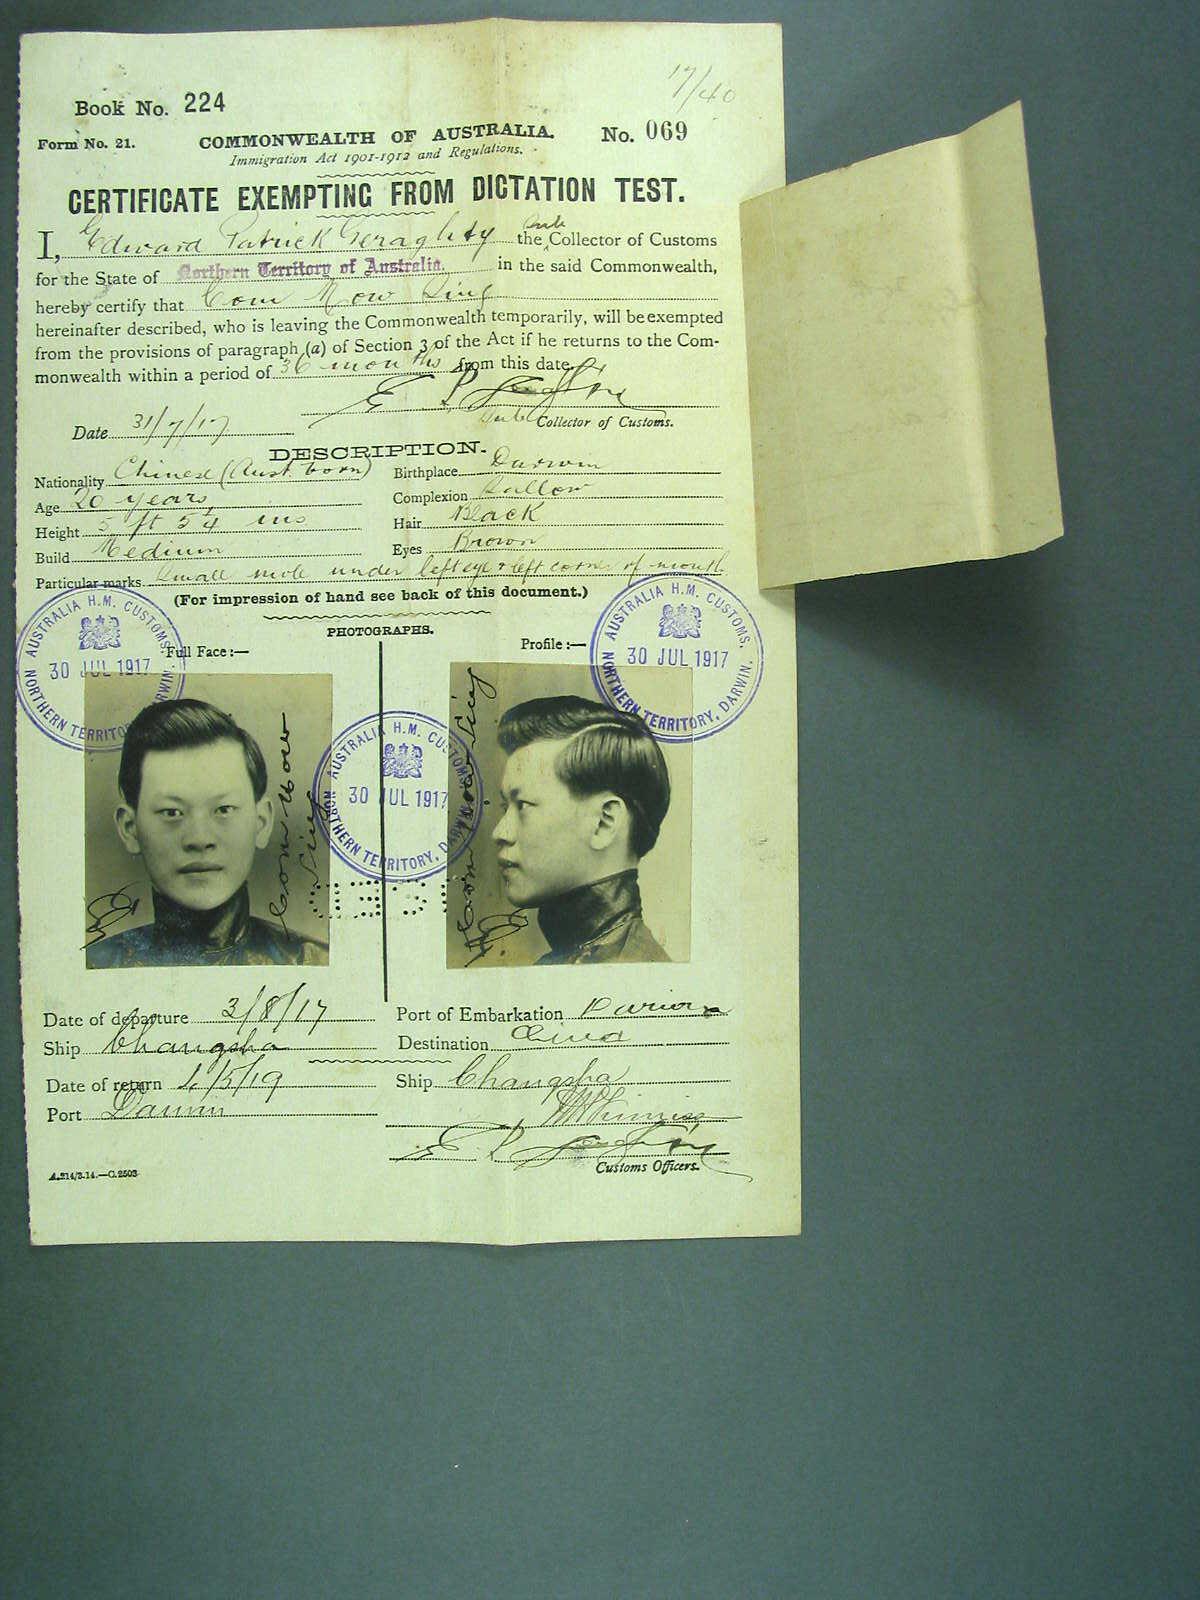 17/40
Book No. 224
Form No. 21. COMMONWEALTH OF AUSTRALIA. No. 069
Immigration Act 1901-1912 and Regulations.
CERTIFICATE EXEMPTING FROM DICTATION TEST.
I, Edward Patrick Geraghty the Sub Collector of Customs
for the State of Northern Territory of Australia. in the said Commonwealth,
hereby certify that Com Mow Sing
hereinafter described, who is leaving the Commonwealth temporarily, will be exempted
from the provisions of paragraph (a) of Section 3 of the Act if he returns to the Com-
monwealth within a period of 36 months from this date.
Sub Collector of Customs.
Date 31/7/17
DESCRIPTION.
Nationality Chinese (Aust. born) Birthplace Darwin
Age 20 years Complexion Sallow
Height 5 ft 5¼ ins Hair Black
Build Medium Eyes Brown
Particular marks Small mole under left eye & left corner of mouth
(For impression of hand see back of this document.)
PHOTOGRAPHS.
Full Face:— Profile:—
AUSTRALIA H.M. CUSTOMS. 30 JUL 1917 NORTHERN TERRITORY, DARWIN.
AUSTRALIA H.M. CUSTOMS. 30 JUL 1917 NORTHERN TERRITORY, DARWIN.
AUSTRALIA H.M. CUSTOMS. 30 JUL 1917 NORTHERN TERRITORY, DARWIN.
Com Mow Sing
Com Mow Sing
Date of departure 3/8/17 Port of Embarkation Darwin
Ship Changsha Destination China
Date of return 2/5/19 Ship Changsha
Port Darwin
Customs Officers.
A.214/3.14.—C.2503